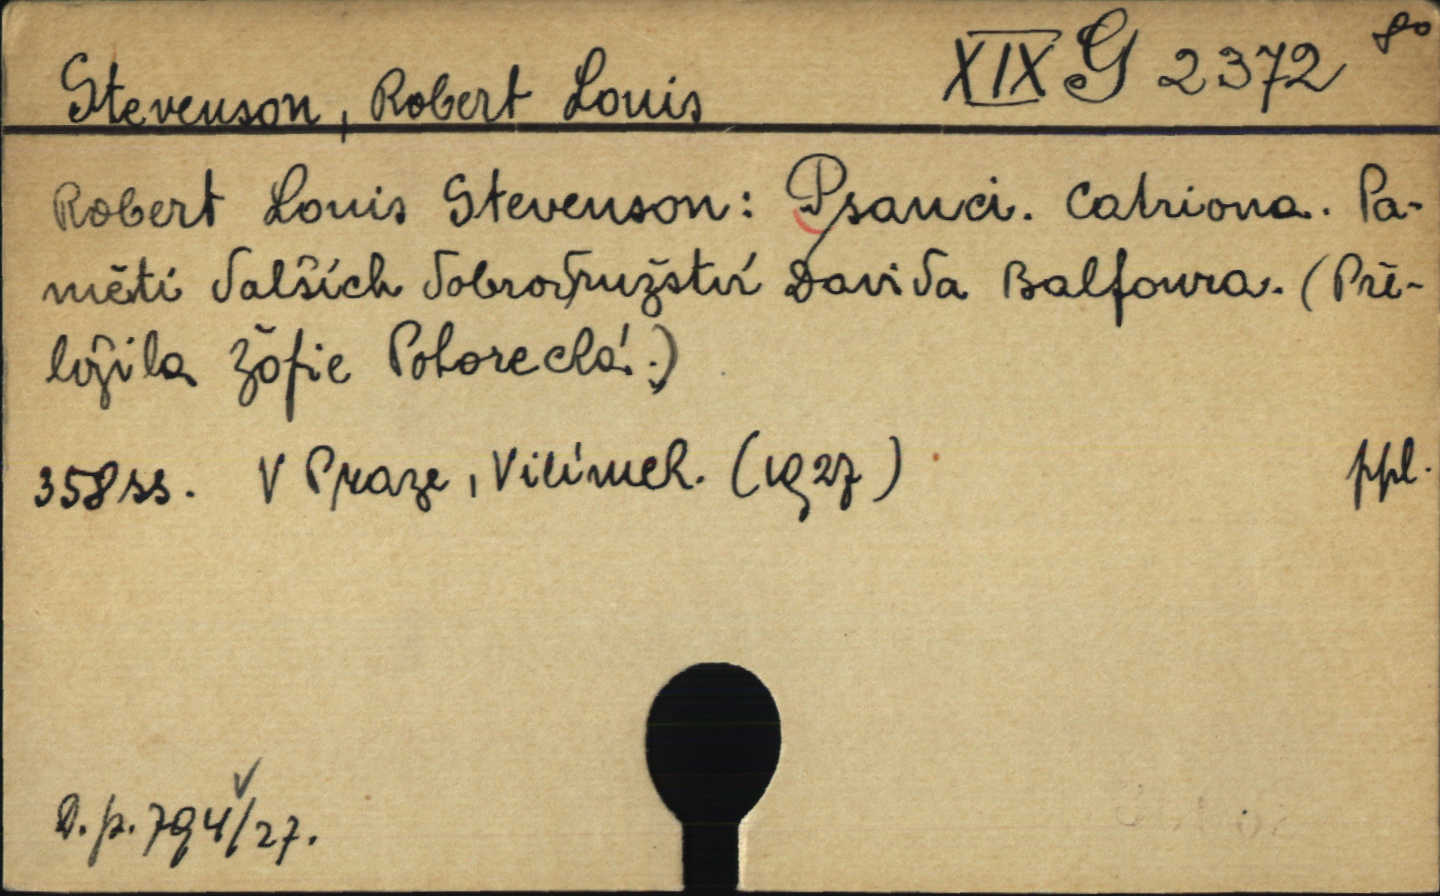 XIX G 2372 8o
Stevenson, Robert Louis
Robert Louis Stevenson: Psanci. Catriona. Pa-
měti dalších dobrodružství Davida Balfoura. (Pře-
ložila Žofie Pohorecká.)
358 ss. V Praze, Vilímek. (1927) ppl.
D. p. 794/27.